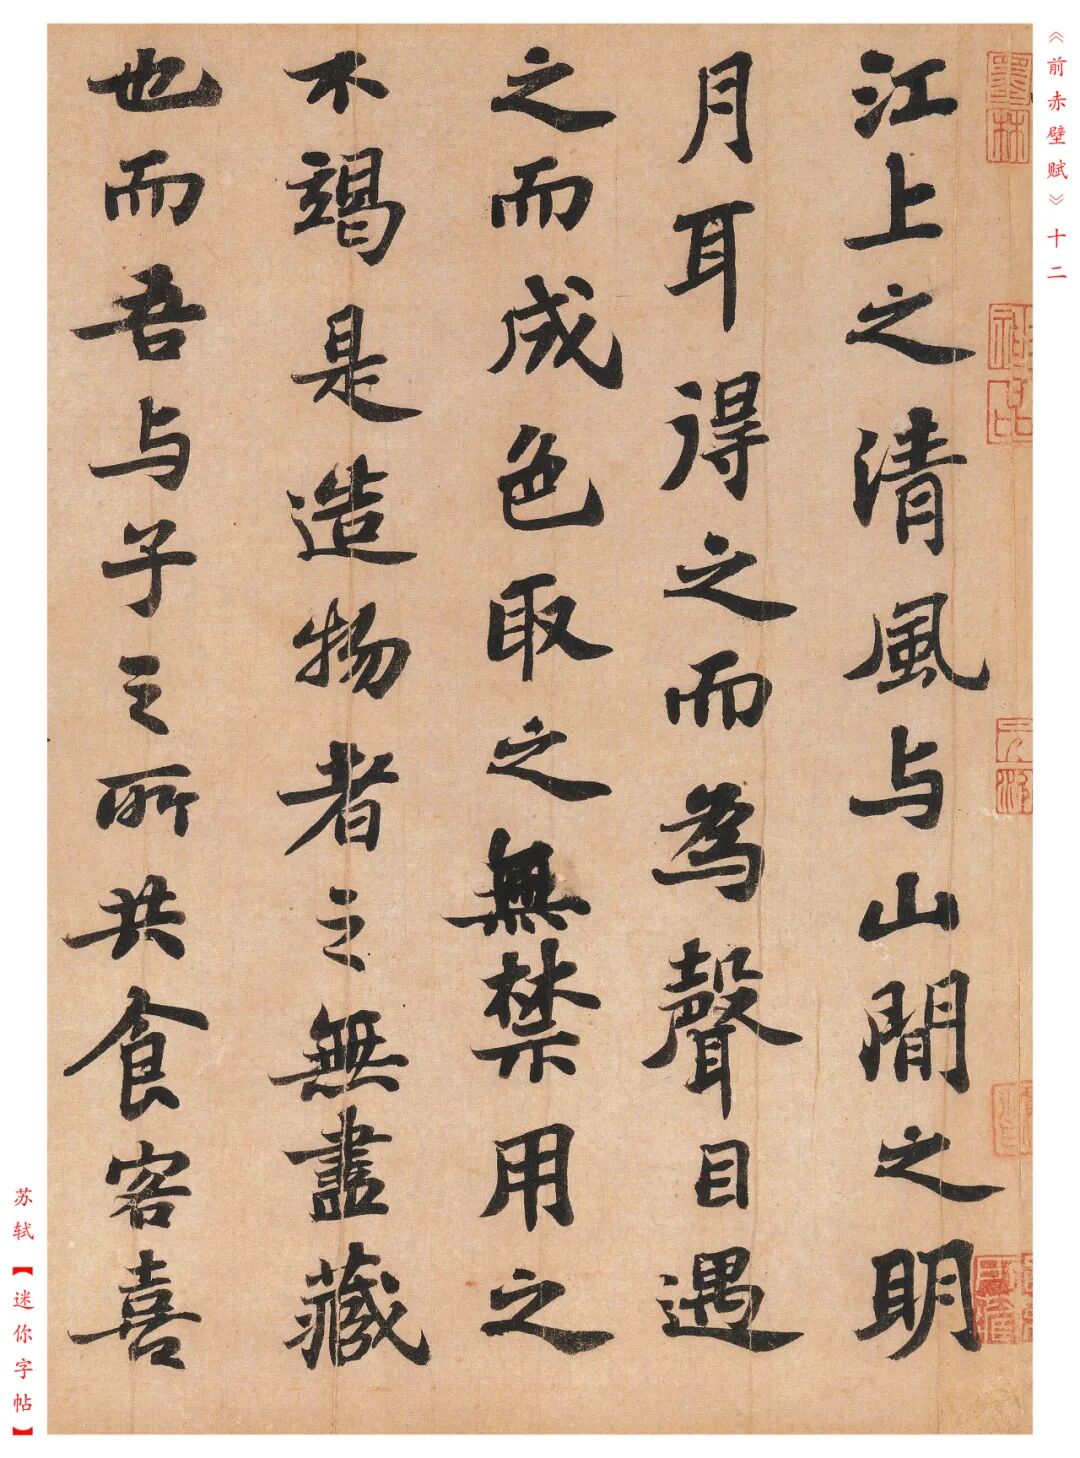 《前赤壁赋》十二
江上之清風与山間之明
月耳得之而為聲目遇
之而成色取之無禁用之
不竭是造物者之無盡藏
也而吾与子之所共食客喜
苏轼【迷你字帖】